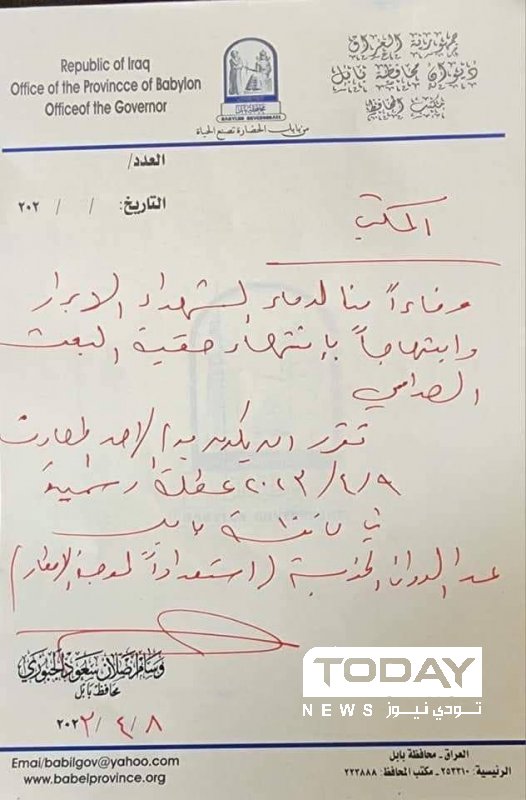 Republic of Iraq
Office of the Provincce of Babylon
Officeof the Governor
جمهورية العراق
ديوان محافظة بابل
مكتب المحافظ
محافظة بابل
BABYLON GOVERNORATE
من بابل الحضارة تصنع الحياة
العدد/
التاريخ: / / ٢٠٢
المكتب
وفاءاً منا لدماء الشهداء الابرار
وابتهاجاً بإنتهاء حقبة البعث
الصدامي
تقرر ان يكون يوم الاحد المصادف
٢٠٢٣/٤/٩ عطلة رسمية
في محافظة بابل
عدا الدوائر الخدمية (استعداداً لموجة الامطار)
وسام اصلان سعود الجبوري
محافظ بابل
٢٠٢٣/٤/٨
TODAY
NEWS تودي نيوز
Emai/babilgov@yahoo.com
www.babelprovince.org
العراق - محافظة بابل
الرئيسية: ٢٥٣٣١٠ - مكتب المحافظ: ٢٢٣٨٨٨